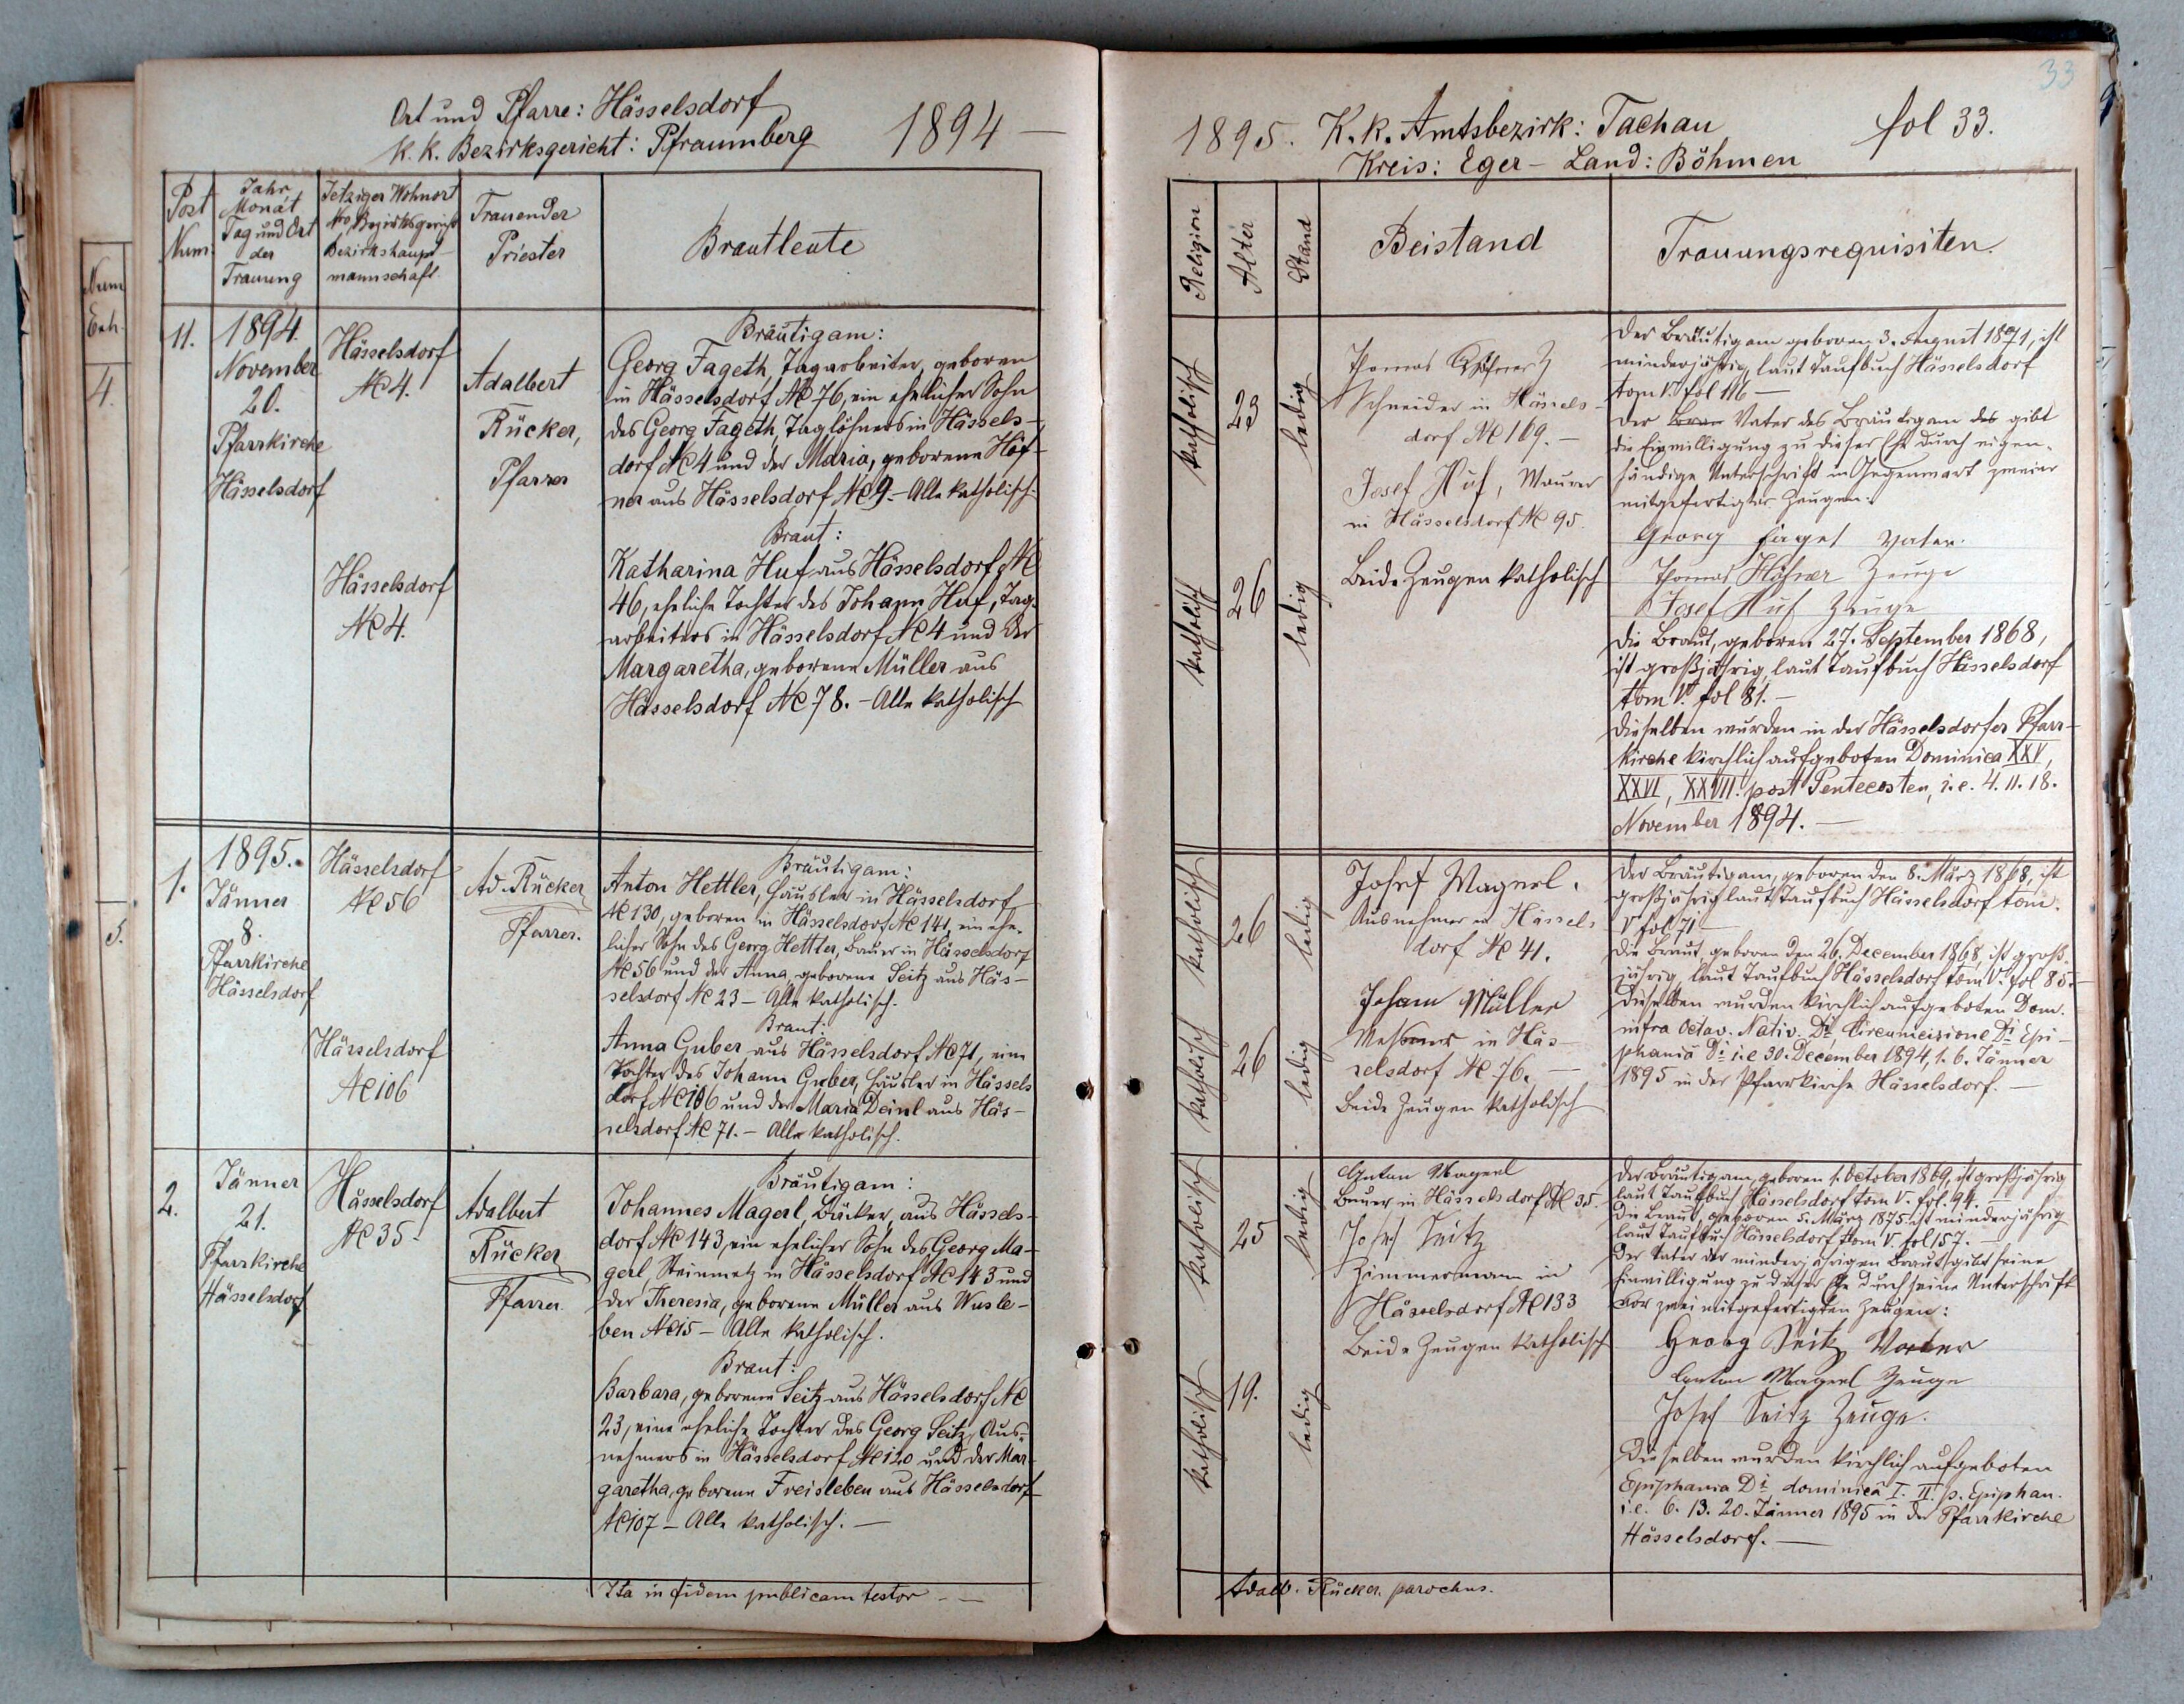 Ort und Pfarre: Hässelsdorf
K. K. Bezirksgericht: Pfraumberg
1894 —
Post
Num
Jahr
Monat
Tag und Ort
der
Trauung
Jetziger Wohnort
Nro, Bezirksgericht
Bezirkshaupt-
mannschaft
Trauender
Priester
Brautleute
11.
1894.
November
20.
Pfarrkirche
Hässelsdorf
Hässelsdorf
N° 4.
Hässelsdorf
N° 4.
Adalbert
Rücker,
Pfarrer
Bräutigam:
Georg Fageth, Tagarbeiter, geboren
in Hässelsdorf N° 76, ein ehelicher Sohn
des Georg Fageth, Taglöhners in Hässels-
dorf N° 4 und der Maria, geborene Höf-
ner aus Hässelsdorf N° 9. – Alle katholisch.
Braut:
Katharina Huf aus Hässelsdorf N°
46, eheliche Tochter des Johann Huf, Tag-
arbeiters in Hässelsdorf N° 4 und der
Margaretha, geborene Müller aus
Hässelsdorf N° 78. – Alle katholisch
1.
1895.
Jänner
8.
Pfarrkirche
Hässelsdorf
Hässelsdorf
N° 56
Hässelsdorf
N° 106
Ad. Rücker
Pfarrer.
Bräutigam:
Anton Hettler, Häusler in Hässelsdorf
N° 130, geboren in Hässelsdorf N° 141, ein ehe-
licher Sohn des Georg Hettler, Bauer in Hässelsdorf
N° 56 und der Anna, geborene Seitz aus Häs-
selsdorf N° 23 – Alle katholisch.
Braut:
Anna Guber aus Hässelsdorf N° 71, eine
Tochter des Johann Guber, Häusler in Hässels
dorf N° 106 und der Maria Deinl aus Häs-
selsdorf N° 71. – Alle katholisch.
2.
Jänner
21.
Pfarrkirche
Hässelsdorf
Hässelsdorf
N° 35.
Adalbert
Rücker
Pfarrer.
Bräutigam:
Johannes Magerl, Bäcker, aus Hässels-
dorf N° 143, ein ehelicher Sohn des Georg Ma-
gerl, Steinmetz in Hässelsdorf N° 143 und
der Theresia, geborene Müller aus Wusle-
ben N° 15 – Alle katholisch.
Braut:
Barbara, geborene Seitz aus Hässelsdorf N°
23, eine eheliche Tochter des Georg Seitz, Aus-
nehmers in Hässelsdorf N° 120 und der Mar-
garetha, geborene Freisleben aus Hässelsdorf
N° 107 – Alle katholisch. —
Ita in fidem publicam testor – —
33
1895. K. k. Amtsbezirk: Tachau
fol 33.
Kreis: Eger – Land: Böhmen
Religion
Alter
Stand
Beistand
Trauungsrequisiten.
katholisch
23
ledig
katholisch
26
ledig
Thomas
Schneider in Hässels-
dorf N° 169. –
Josef Huf, Maurer
in Hässelsdorf N° 95.
Beide Zeugen katholisch
Der Bräutigam geboren 3. August 1871, ist
minderjährig, laut Taufbuch Hässelsdorf
tom V. fol 116 —
Der Vater des Bräutigam des gibt
die Einwilligung zu dieser Ehe durch eigen-
händige Unterschrift in Gegenwart zweier
mitgefertigter Zeugen:
Georg Faget Vater.
Thomas Höfner Zeuge
Josef Huf Zeuge
Die Braut, geboren 27. September 1868,
ist großjährig, laut Taufbuch Hässelsdorf
tom V. fol 81. –
Dieselben wurden in der Hässelsdorfer Pfarr-
kirche kirchlich aufgeboten Dominica XXV,
XXVI, XXVII. post Pentecosten, i. e. 4. 11. 18.
November 1894. —
katholisch
26
ledig
katholisch
26
ledig
Josef Magerl.
Ausnehmer in Hässels-
dorf N° 41.
Johann Müller
in Häs-
selsdorf N° 76. —
Beide Zeugen katholisch
Der Bräutigam, geboren den 8. März 1868, ist
großjährig laut Taufbuch Hässelsdorf tom.
V fol 71 –
Die Braut, geboren den 26. December 1868, ist groß-
jährig, laut Taufbuch Hässelsdorf tom V. fol 85. –
Dieselben wurden kirchlich aufgeboten Dom.
infra Octav. Nativ. Di, Circumcisione Di Epi-
phania Di i. e 30. December 1894, 1. 6. Jänner
1895 in der Pfarrkirche Hässelsdorf. —
katholisch
25
ledig
katholisch
19.
ledig
Anton Magerl
Bauer in Hässelsdorf N° 35.
Josef Seitz
Zimmermann in
Hässelsdorf N° 133
Beide Zeugen katholisch
Der Bräutigam, geboren 1. October 1869, ist großjährig
laut Taufbuch Hässelsdorf tom V. fol. 94.
Die Braut, geboren 5. März 1875 ist minderjährig
laut Taufbuch Hässelsdorf tom V. fol 157. –
Der Vater der minderjährigen Braut gibt seine
Einwilligung zu dieser Ehe durch seine Unterschrift
vor zwei mitgefertigten Zeugen:
Georg Seitz Vater
Anton Magerl Zeuge
Josef Seitz Zeuge.
Dieselben wurden kirchlich aufgeboten
Epiphania Di dominica I. II. p. Epiphan.
i. e. 6. 13. 20. Jänner 1895 in der Pfarrkirche
Hässelsdorf. —
Adalb. Rücker. parochus.
Num
Exh.
4.
5.